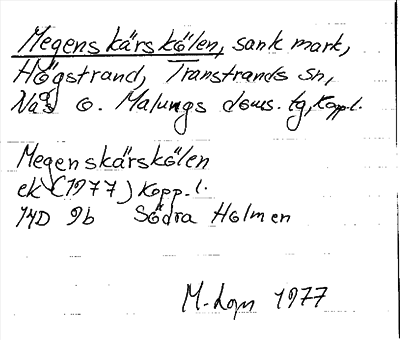 Megenskärskölen, sank mark,
Högstrand, Transtrands sn,
Nås o. Malungs doms. tg, Kopp.l.
Megenskärskölen
ek (1977) Kopp.l.
14D 9b Södra Holmen
M. 1977